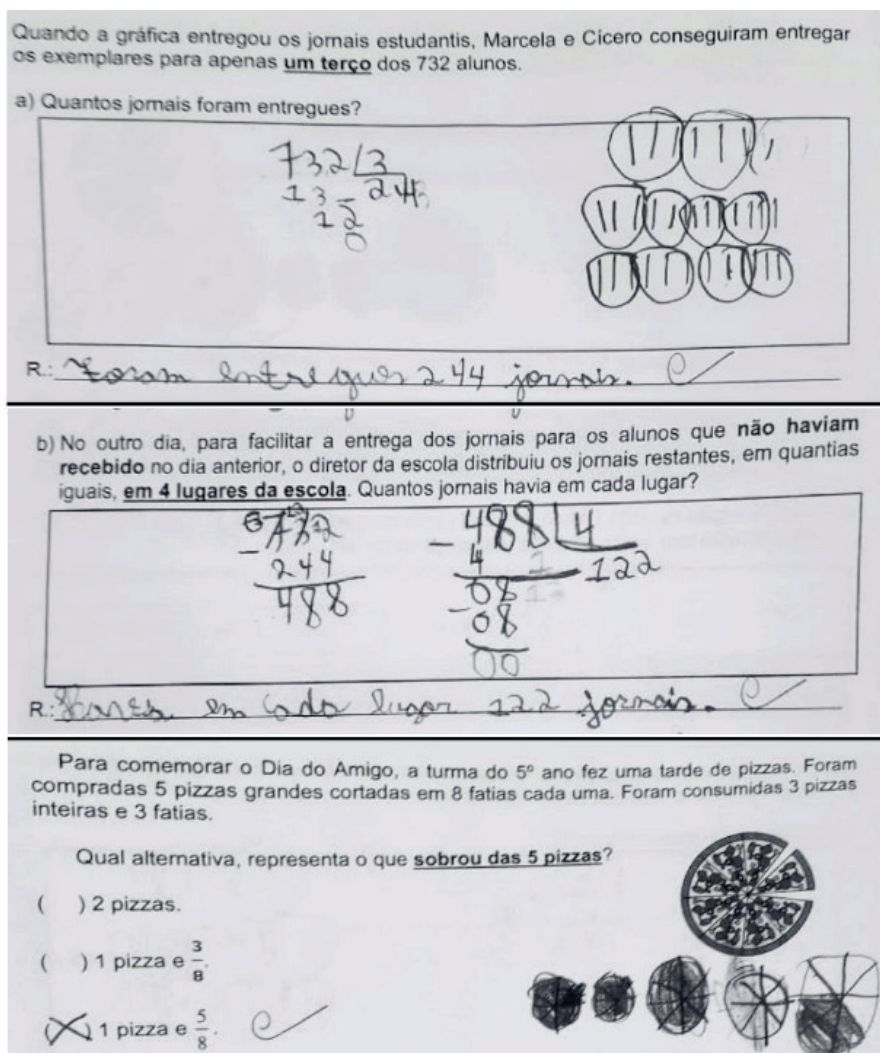 Quando a gráfica entregou os jornais estudantis, Marcela e Cícero conseguiram entregar
os exemplares para apenas um terço dos 732 alunos.
a) Quantos jornais foram entregues?
732 3
13 244
12
0
R.: Foram entregues 244 jornais. C
b) No outro dia, para facilitar a entrega dos jornais para os alunos que não haviam
recebido no dia anterior, o diretor da escola distribuiu os jornais restantes, em quantias
iguais, em 4 lugares da escola. Quantos jornais havia em cada lugar?
732
- 244
488
- 488 4
4 122
08
- 08
00
R.: em cada lugar 122 jornais. C
Para comemorar o Dia do Amigo, a turma do 5º ano fez uma tarde de pizzas. Foram
compradas 5 pizzas grandes cortadas em 8 fatias cada uma. Foram consumidas 3 pizzas
inteiras e 3 fatias.
Qual alternativa, representa o que sobrou das 5 pizzas?
( ) 2 pizzas.
( ) 1 pizza e 3/8.
(X) 1 pizza e 5/8. C